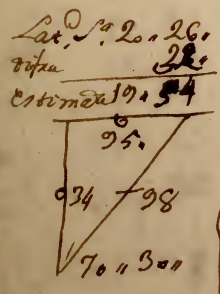 Lat.º Sª. 20 ,, 26 ,,
difxa 32.
estimada 19 ,, 54
95.
34 98
70 ,, 30 ,,